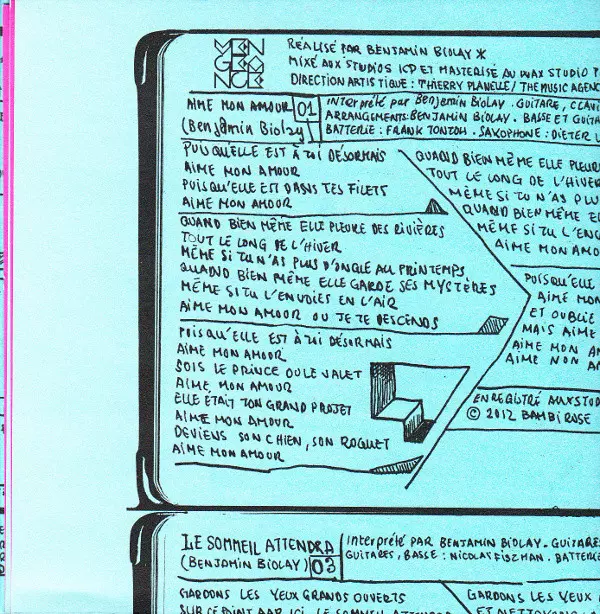 VENGEANCE
RÉALISÉ PAR BENJAMIN BIOLAY *
MIXÉ AUX STUDIOS ICP ET MASTERISÉ AU WAX STUDIO
DIRECTION ARTISTIQUE : THIERRY PLANELLE / THE MUSIC AGENC
AIME MON AMOUR 01
(Benjamin Biolay)
interprété par Benjamin BIOLAY. GUITARE, CLAVI
ARRANGEMENTS: BENJAMIN BIOLAY. BASSE ET GUITA
BATTERIE : FRANK TONTOH. SAXOPHONE : DIETER L
PUISQU'ELLE EST À TOI DÉSORMAIS
AIME MON AMOUR
PUISQU'ELLE EST DANS TES FILETS
AIME MON AMOUR
QUAND BIEN MÊME ELLE PLEURE DES RIVIÈRES
TOUT LE LONG DE L'HIVER
MÊME SI TU N'AS PLUS D'ONGLE AU PRINTEMPS
QUAND BIEN MÊME ELLE GARDE SES MYSTÈRES
MÊME SI TU L'ENVOIES EN L'AIR
AIME MON AMOUR OU JE TE DESCENDS
PUISQU'ELLE EST À TOI DÉSORMAIS
AIME MON AMOUR
SOIS LE PRINCE OU LE VALET
AIME MON AMOUR
ELLE ÉTAIT TON GRAND PROJET
AIME MON AMOUR
DEVIENS SON CHIEN, SON ROQUET
AIME MON AMOUR
QUAND BIEN MÊME ELLE PLEUR
TOUT LE LONG DE L'HIVER
MÊME SI TU N'AS PLU
QUAND BIEN MÊME E
MÊME SI TU L'ENV
AIME MON AMO
PUISQU'ELLE
AIME MON
ET OUBLIE
MAIS AIME
AIME MON A
AIME MON A
ENREGISTRÉ AUX STUD
© 2012 BAMBI ROSE
LE SOMMEIL ATTENDRA
(BENJAMIN BIOLAY) 03
interprété PAR BENJAMIN BIOLAY. GUITARES
GUITARES, BASSE : NICOLAS FISZMAN. BATTERIE
GARDONS LES YEUX GRANDS OUVERTS
SUR CE POINT PAR ICI LE SOMMEIL ATTENDRA
GARDONS LES YEUX
ET NETTOYONS